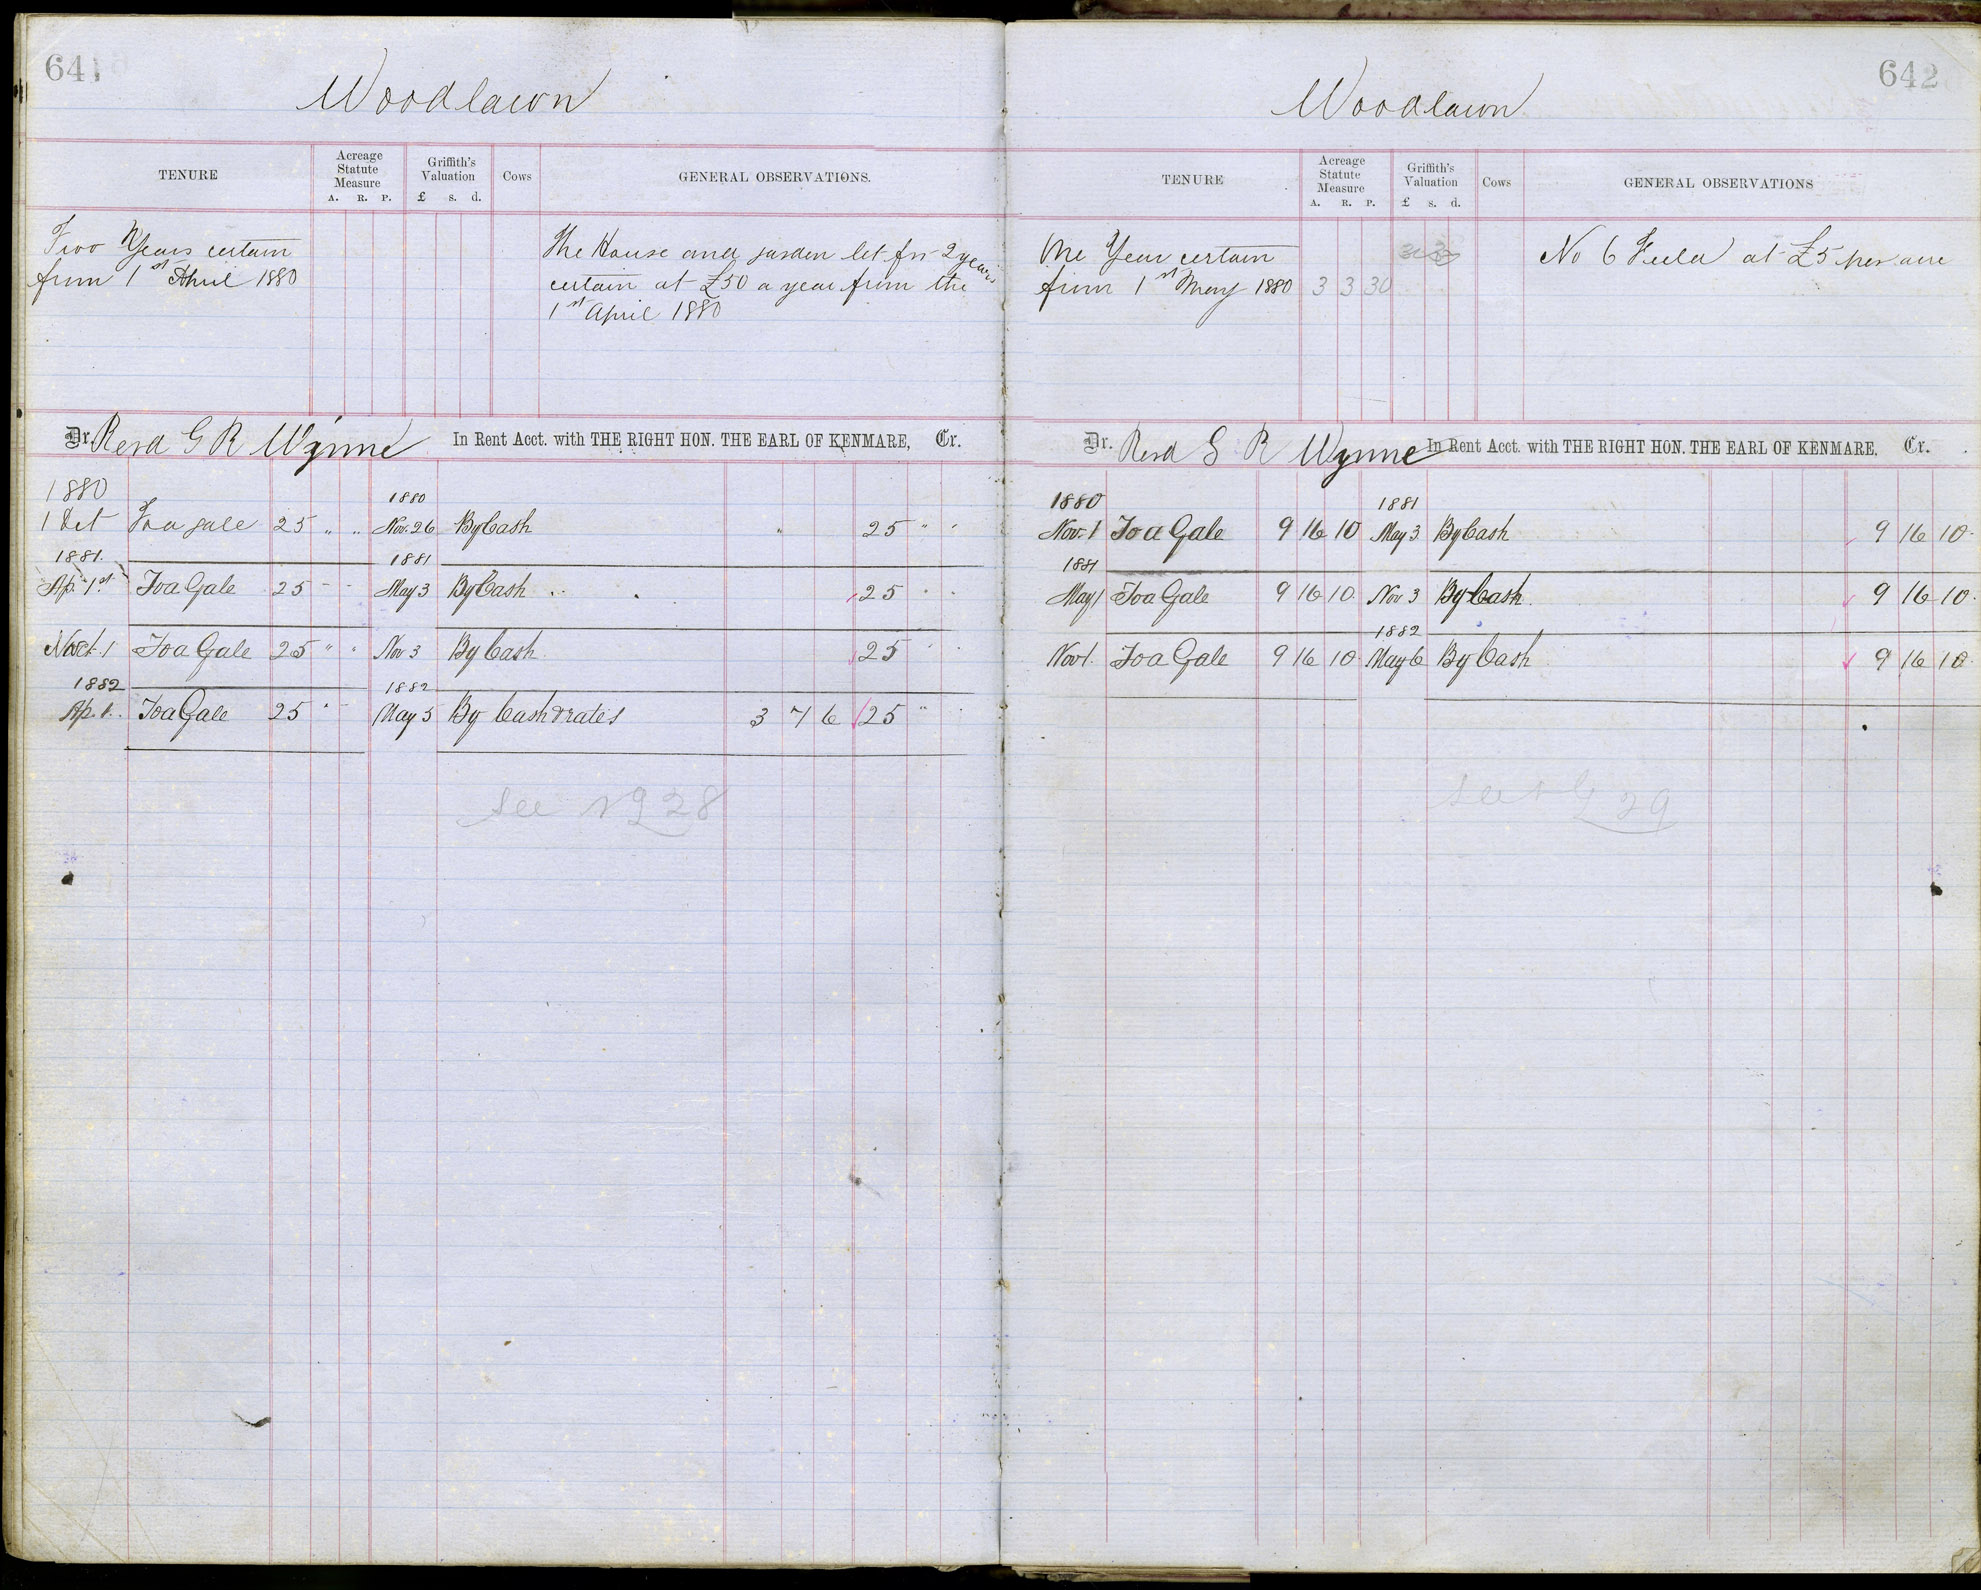 641
Woodlawn
TENURE
Acreage Statute Measure
A. R. P.
Griffith's Valuation
£ s. d.
Cows
GENERAL OBSERVATIONS.
Two Years certain
from 1st April 1880
The House and garden let for 2 years
certain at £50 a year from the
1st April 1880
Dr. Revd G R Wynne In Rent Acct. with THE RIGHT HON. THE EARL OF KENMARE, Cr.
1880 1880
1 Oct To a gale 25 " " Nov. 26 By Cash 25 " "
1881. 1881
Ap. 1st To a Gale 25 - - May 3 By Cash 25 " "
Oct. 1 To a Gale 25 " " Nov 3 By Cash 25 " "
1882 1882
Ap. 1. To a Gale 25 " - May 5 By Cash & rates 3 7 6 25 " "
See 28
642
Woodlawn
TENURE
Acreage Statute Measure
A. R. P.
Griffith's Valuation
£ s. d.
Cows
GENERAL OBSERVATIONS
One Year certain
from 1st May 1880 3 3 30
No 6 Field at £5 per acre
Dr. Revd G R Wynne In Rent Acct. with THE RIGHT HON. THE EARL OF KENMARE, Cr.
1880 1881
Nov. 1 To a Gale 9 16 10 May 3 By Cash 9 16 10
1881
May 1 To a Gale 9 16 10 Nov 3 By Cash 9 16 10
1882
Nov 1. To a Gale 9 16 10 May 6 By Cash 9 16 10
See 29